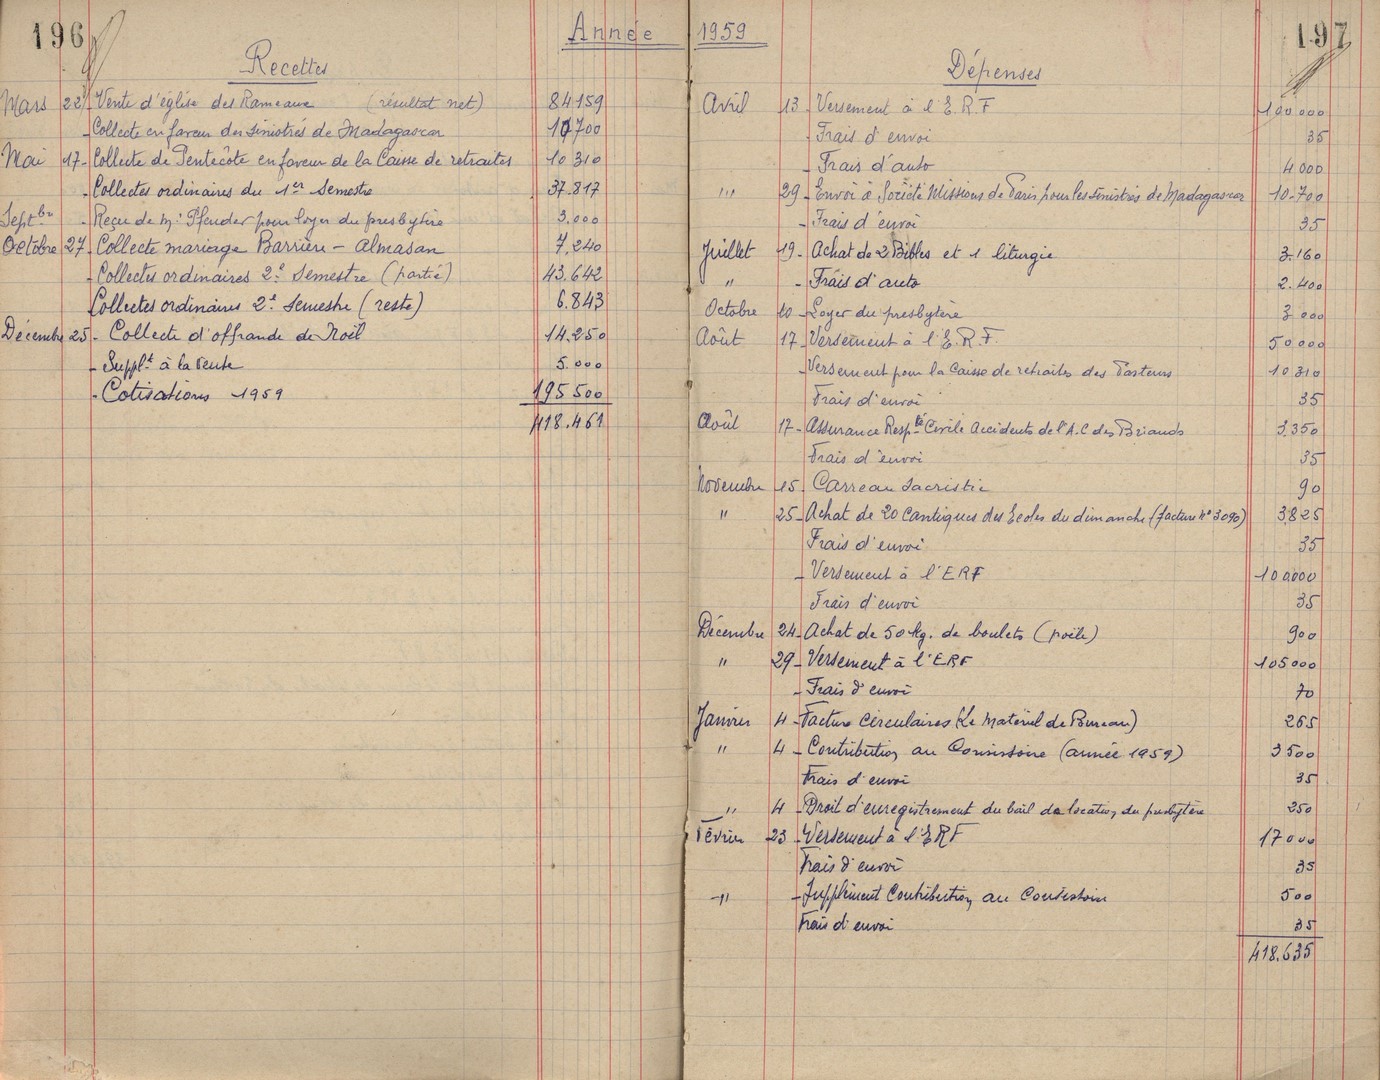 196
Année 1959
197
Recettes
Mars 22 - Vente d'église des Rameaux (résultat net) 84159
- Collecte en faveur des sinistrés de Madagascar 10700
Mai 17 - Collecte de Pentecôte en faveur de la Caisse de retraites 10310
- Collectes ordinaires du 1er Semestre 37.817
Septbre - Reçu de Mr Pfender pour loyer du presbytère 3.000
Octobre 27 - Collecte mariage Barrière - Almasan 7.240
- Collectes ordinaires 2e Semestre (partie) 43.642
Collectes ordinaires 2e Semestre (reste) 6.843
Décembre 25 - Collecte d'offrande de Noël 14.250
- Supplt à la vente 5.000
- Cotisations 1959 195500
418.461
Dépenses
Avril 13 - Versement à l'E.R.F 100.000
- Frais d'envoi 35
- Frais d'auto 4000
" 29 - Envoi à Société Missions de Paris pour les sinistrés de Madagascar 10.700
- Frais d'envoi 35
Juillet 19 - Achat de 2 Bibles et 1 liturgie 3.160
" - Frais d'auto 2.400
Octobre 10 - Loyer du presbytère 3 000
Août 17 - Versement à l'E.R.F. 50000
- Versement pour la Caisse de retraites des Pasteurs 10310
Frais d'envoi 35
Août 17 - Assurance Respté Civile Accidents de l'A.C des Briands 3.350
Frais d'envoi 35
Novembre 15. Carreau Sacristie 90
" 25 - Achat de 20 Cantiques des Ecoles du dimanche (facture N° 3090) 3.825
Frais d'envoi 35
- Versement à l'ERF 100.000
Frais d'envoi 35
Décembre 24 - Achat de 50 kg. de boulets (poële) 900
" 29 - Versement à l'ERF 105000
- Frais d'envoi 70
Janvier 4 - Facture Circulaires (Le Matériel de Bureau) 265
" 4 - Contribution au Consistoire (année 1959) 3500
Frais d'envoi 35
" 4 - Droit d'enregistrement du bail de location du presbytère 250
Février 23 - Versement à l'ERF 17000
Frais d'envoi 35
" - Supplément Contribution au Consistoire 500
Frais d'envoi 35
418.635